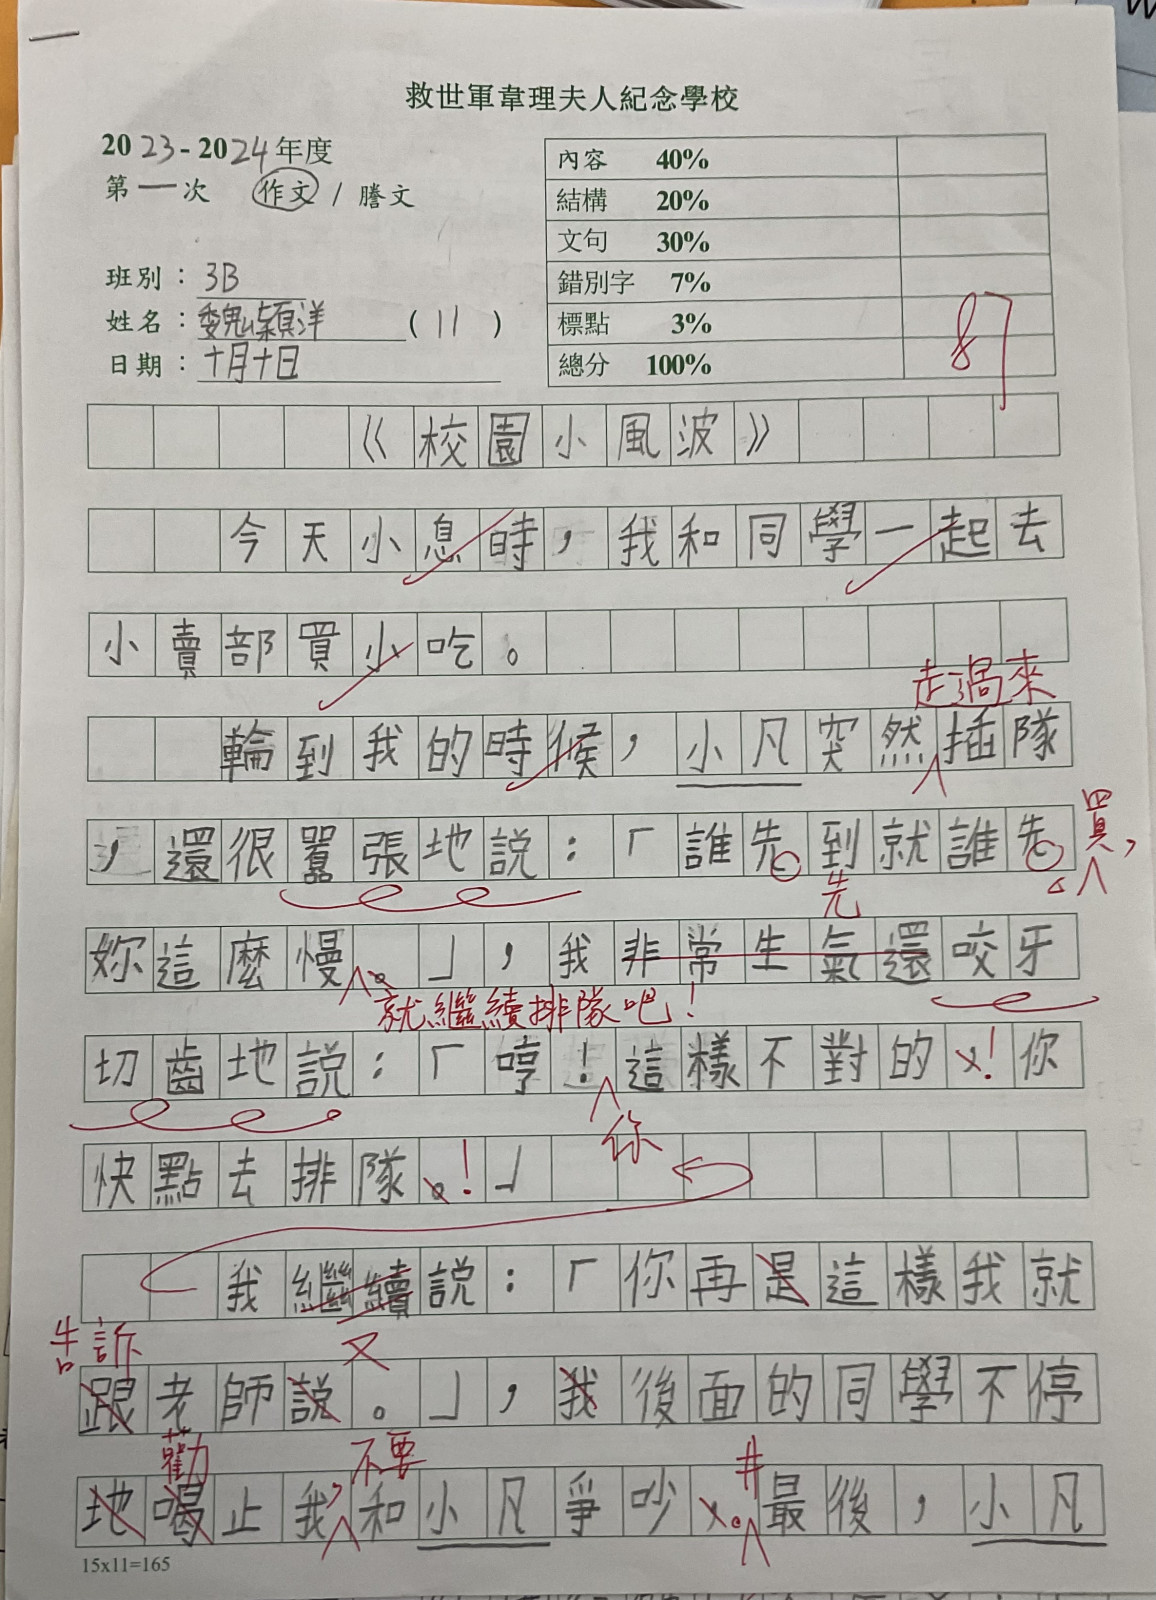 救世軍韋理夫人紀念學校
2023-2024年度
第一次 作文 / 謄文
內容 40%
結構 20%
文句 30%
錯別字 7%
標點 3%
總分 100%
87
班別：3B
姓名：魏穎洋 (11)
日期：十月十日
《校園小風波》
今天小息時，我和同學一起去
小賣部買小吃。
走過來
輪到我的時候，小凡突然插隊
，還很囂張地説：「誰先到就誰先
買，
先
妳這麼慢。」，我非常生氣還咬牙
就繼續排隊吧！
切齒地説：「哼！這樣不對的！你
你
快點去排隊。！」
我繼續説：「你再是這樣我就
告訴 又
跟老師説。」，我後面的同學不停
勸 不要
地喝止我，和小凡爭吵。最後，小凡
15x11=165